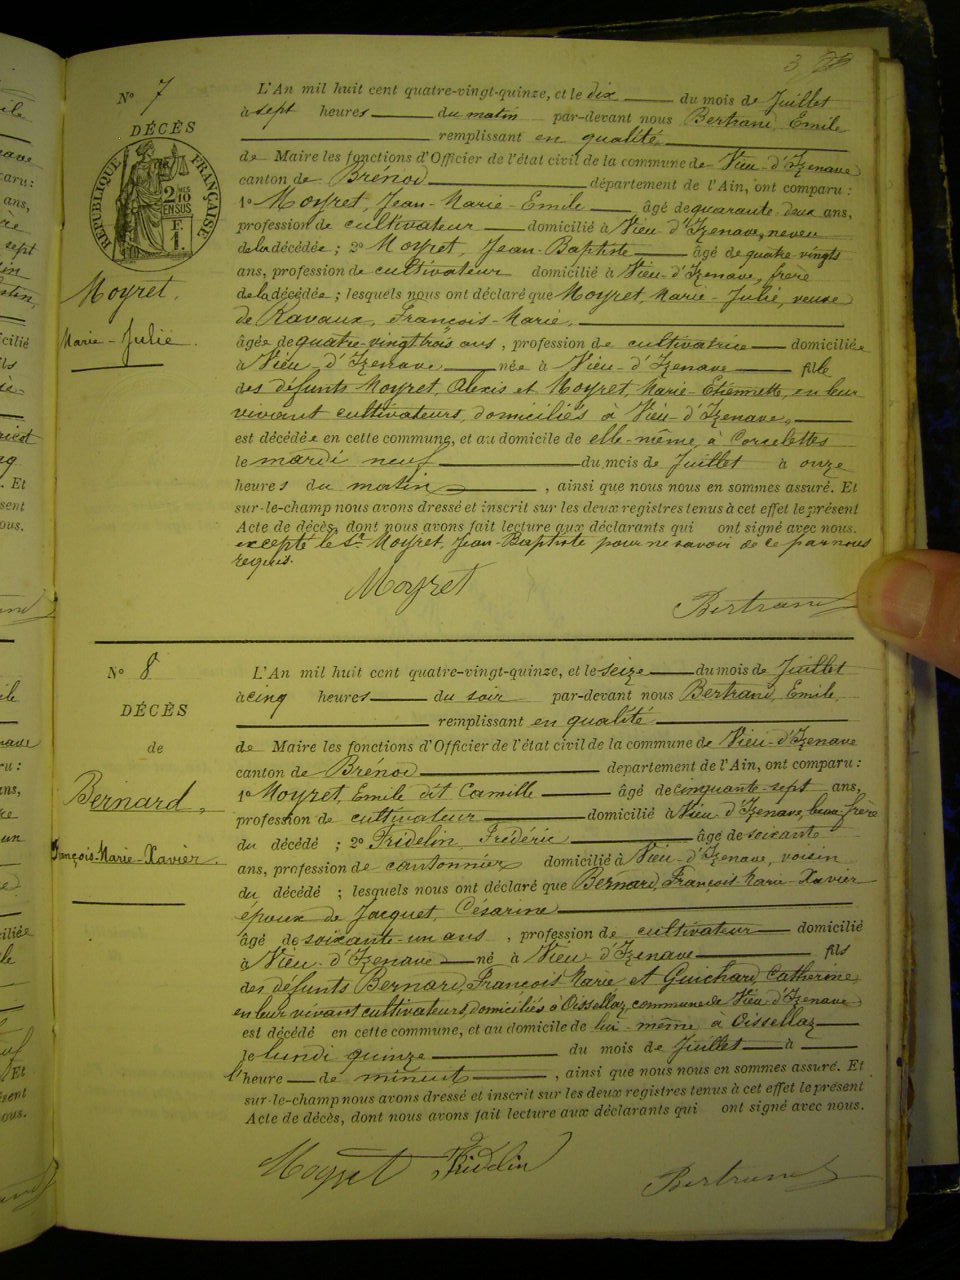 3
N° 7
DÉCÈS
RÉPUBLIQUE FRANÇAISE
2 10MES
EN SUS
F.
1.
Moyret.
Marie-Julie.
L'An mil huit cent quatre-vingt-quinze, et le dix du mois de Juillet
à sept heures du matin par-devant nous Bertrand, Emile
remplissant en qualité
de Maire les fonctions d'Officier de l'état civil de la commune de Vieu-d'Izenave
canton de Brénod département de l'Ain, ont comparu :
1° Moyret, Jean-Marie-Emile âgé de quarante-deux ans,
profession de cultivateur domicilié à Vieu d'Izenave, neveu
de la décédée ; 2° Moyret, Jean-Baptiste âgé de quatre-vingts
ans, profession de cultivateur domicilié à Vieu-d'Izenave, frère
de la décédée ; lesquels nous ont déclaré que Moyret, Marie-Julie, veuve
de Ravaux, François-Marie,
âgée de quatre-vingt trois ans, profession de cultivatrice domiciliée
à Vieu-d'Izenave née à Vieu-d'Izenave fille
des défunts Moyret, Alexis et Moyret, Marie-Etiennette, en leur
vivant cultivateurs, domiciliés à Vieu-d'Izenave,
est décédée en cette commune, et au domicile de elle-même, à Corcelettes
le mardi neuf du mois de Juillet à onze
heures du matin , ainsi que nous nous en sommes assuré. Et
sur-le-champ nous avons dressé et inscrit sur les deux registres tenus à cet effet le présent
Acte de décès, dont nous avons fait lecture aux déclarants qui ont signé avec nous.
excepté le Sr Moyret, Jean-Baptiste pour ne savoir de ce par nous
requis.
Moyret
Bertrand
N° 8
DÉCÈS
de
Bernard,
François-Marie-Xavier.
L'An mil huit cent quatre-vingt-quinze, et le seize du mois de Juillet
à cinq heures du soir par-devant nous Bertrand, Emile,
remplissant en qualité
de Maire les fonctions d'Officier de l'état civil de la commune de Vieu-d'Izenave
canton de Brénod département de l'Ain, ont comparu :
1° Moyret, Emile dit Camille âgé de cinquante-sept ans,
profession de cultivateur domicilié à Vieu-d'Izenave, beau-frère
du décédé ; 2° Fridelin, Frédéric âgé de soixante
ans, profession de cantonnier domicilié à Vieu-d'Izenave, voisin
du décédé ; lesquels nous ont déclaré que Bernard, François-Marie-Xavier
époux de Jacquet, Césarine
âgé de soixante-un ans , profession de cultivateur domicilié
à Vieu-d'Izenave né à Vieu-d'Izenave fils
des défunts Bernard, François Marie et Guichard, Catherine,
en leur vivant cultivateurs, domiciliés à Oissellaz, commune de Vieu-d'Izenave
est décédé en cette commune, et au domicile de lui-même à Oissellaz
le lundi quinze du mois de Juillet à
l'heure de minuit , ainsi que nous nous en sommes assuré. Et
sur-le-champ nous avons dressé et inscrit sur les deux registres tenus à cet effet le présent
Acte de décès, dont nous avons fait lecture aux déclarants qui ont signé avec nous.
Moyret Fridelin
Bertrand